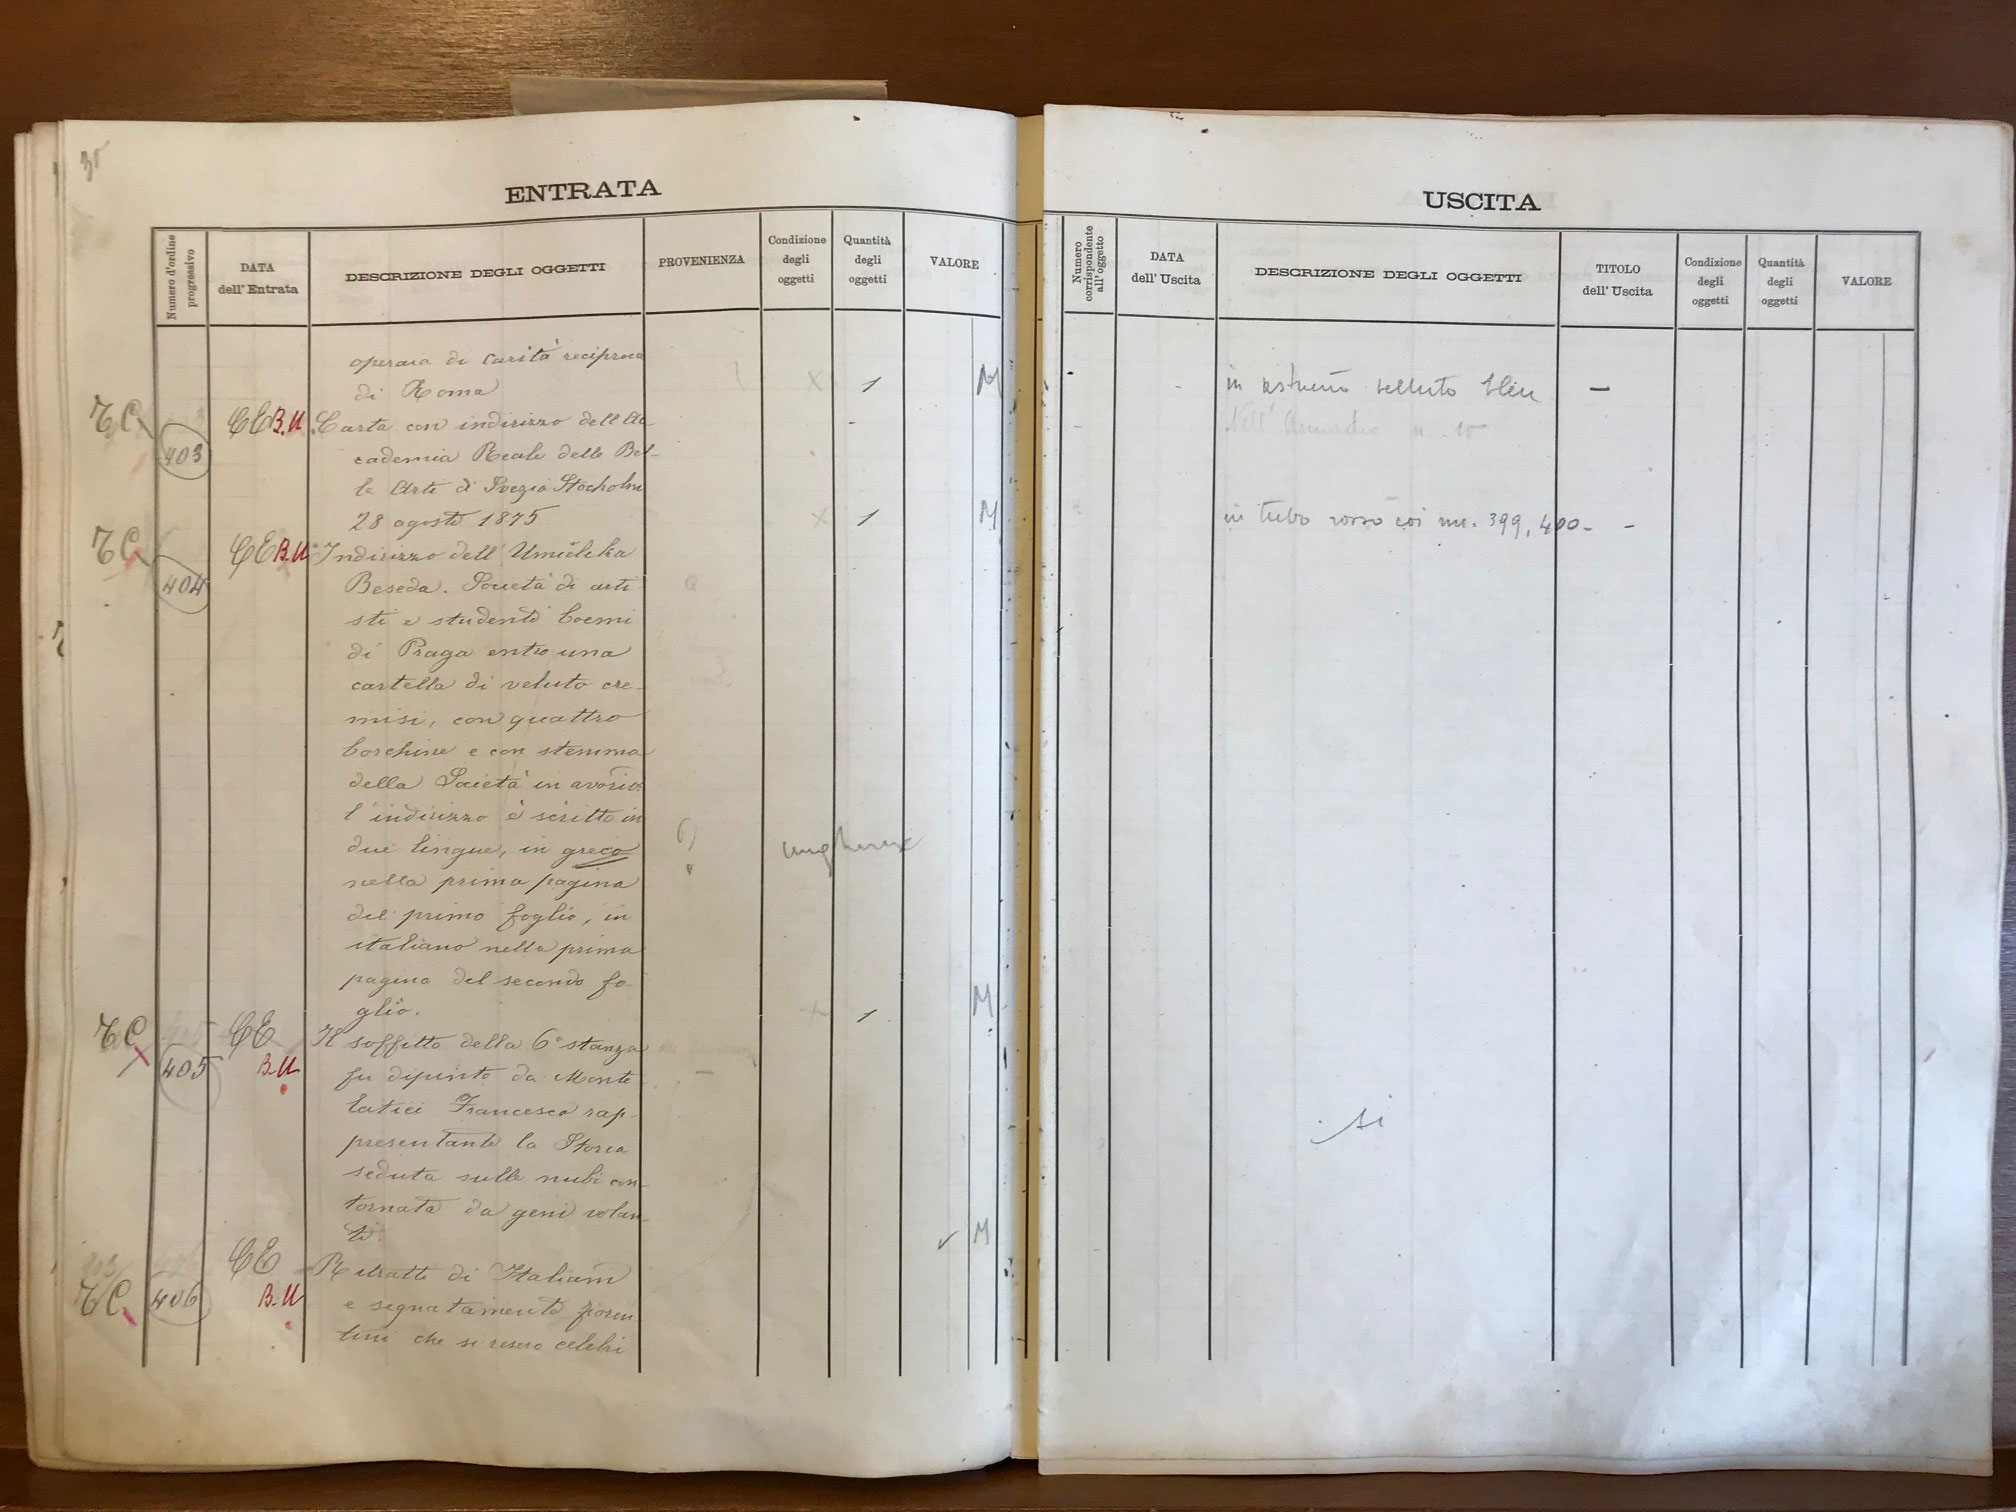 35
ENTRATA
Numero d'ordine progressivo
DATA dell'Entrata
DESCRIZIONE DEGLI OGGETTI
PROVENIENZA
Condizione degli oggetti
Quantità degli oggetti
VALORE
operaia di carità reciproca
di Roma 1 M
TC 403 CE B.U. Carta con indirizzo dell'Ac
cademia Reale delle Bel-
le Arti di Svezia Stocholm
28 agosto 1875 1 M
TC 404 CE B.U. Indirizzo dell'Umělecka
Beseda. Società di arti-
sti e studenti boemi
di Praga entro una
cartella di veluto cre-
misi, con quattro
borchine e con stemma
della Società in avorio.
l'indirizzo è scritto in
due lingue, in greco
nella prima pagina
del primo foglio, in
italiano nella prima
pagina del secondo fo-
glio. 1 M
TC 405 CE B.U. Il soffitto della 6ª stanza
fu dipinto da Monte
latici Francesco rap-
presentante la Storia
seduta sulle nubi con-
tornata da geni volan-
ti. M
TC 406 CE B.U. Ritratti di Italiani
e segnatamente fioren
tini che si resero celebri
USCITA
Numero corrispondente all'oggetto
DATA dell'Uscita
DESCRIZIONE DEGLI OGGETTI
TITOLO dell'Uscita
Condizione degli oggetti
Quantità degli oggetti
VALORE
in astuccio velluto bleu —
Nell'Armadio n. 10
in tubo rosso coi nn. 399, 400 -
si